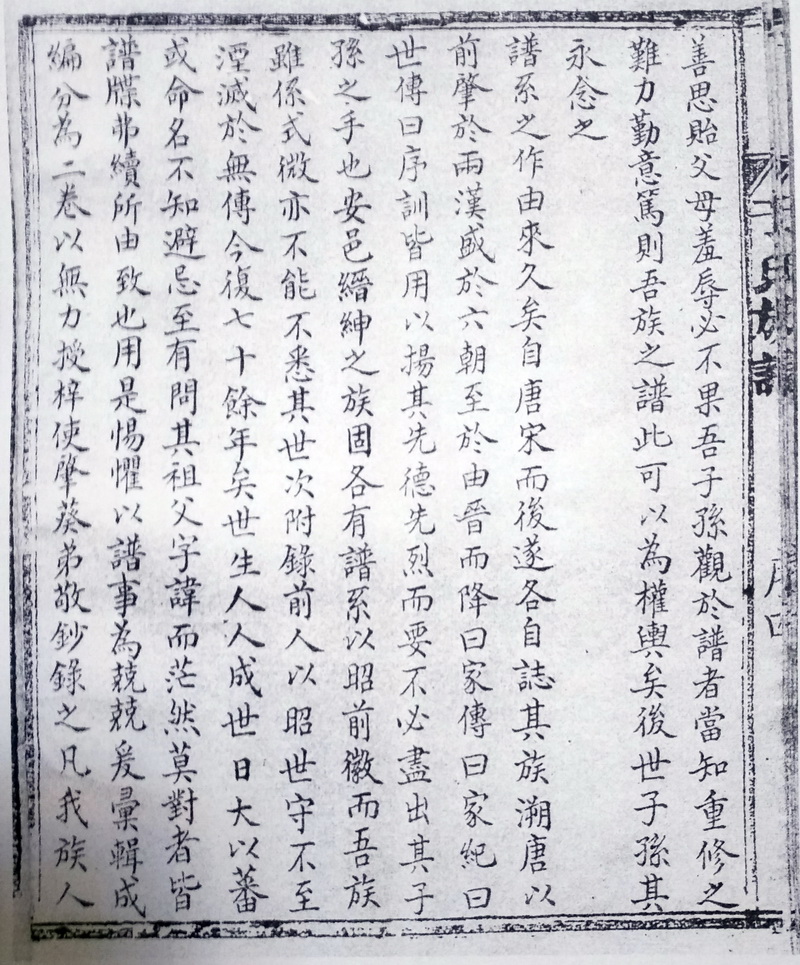 善思貽父母羞辱必不果吾子孫觀於譜者當知重修之
難力勤意篤則吾族之譜此可以為權輿矣後世子孫其
永念之
譜系之作由來久矣自唐宋而後遂各自誌其族溯唐以
前肇於兩漢盛於六朝至於由晉而降曰家傳曰家紀曰
世傳曰序訓皆用以揚其先德先烈而要不必盡出其子
孫之手也安邑縉紳之族固各有譜系以昭前徽而吾族
雖係式微亦不能不悉其世次附錄前人以昭世守不至
湮滅於無傳今復七十餘年矣世生人人成世日大以蕃
或命名不知避忌至有問其祖父字諱而茫然莫對者皆
譜牒弗續所由致也用是惕懼以譜事為兢兢爰彙輯成
編分為二卷以無力授梓使肇葵弟敬鈔錄之凡我族人
氏族譜
序四